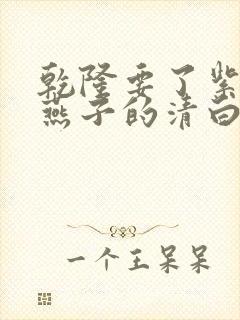 乾隆要了紫
燕子的清白
一个王呆呆